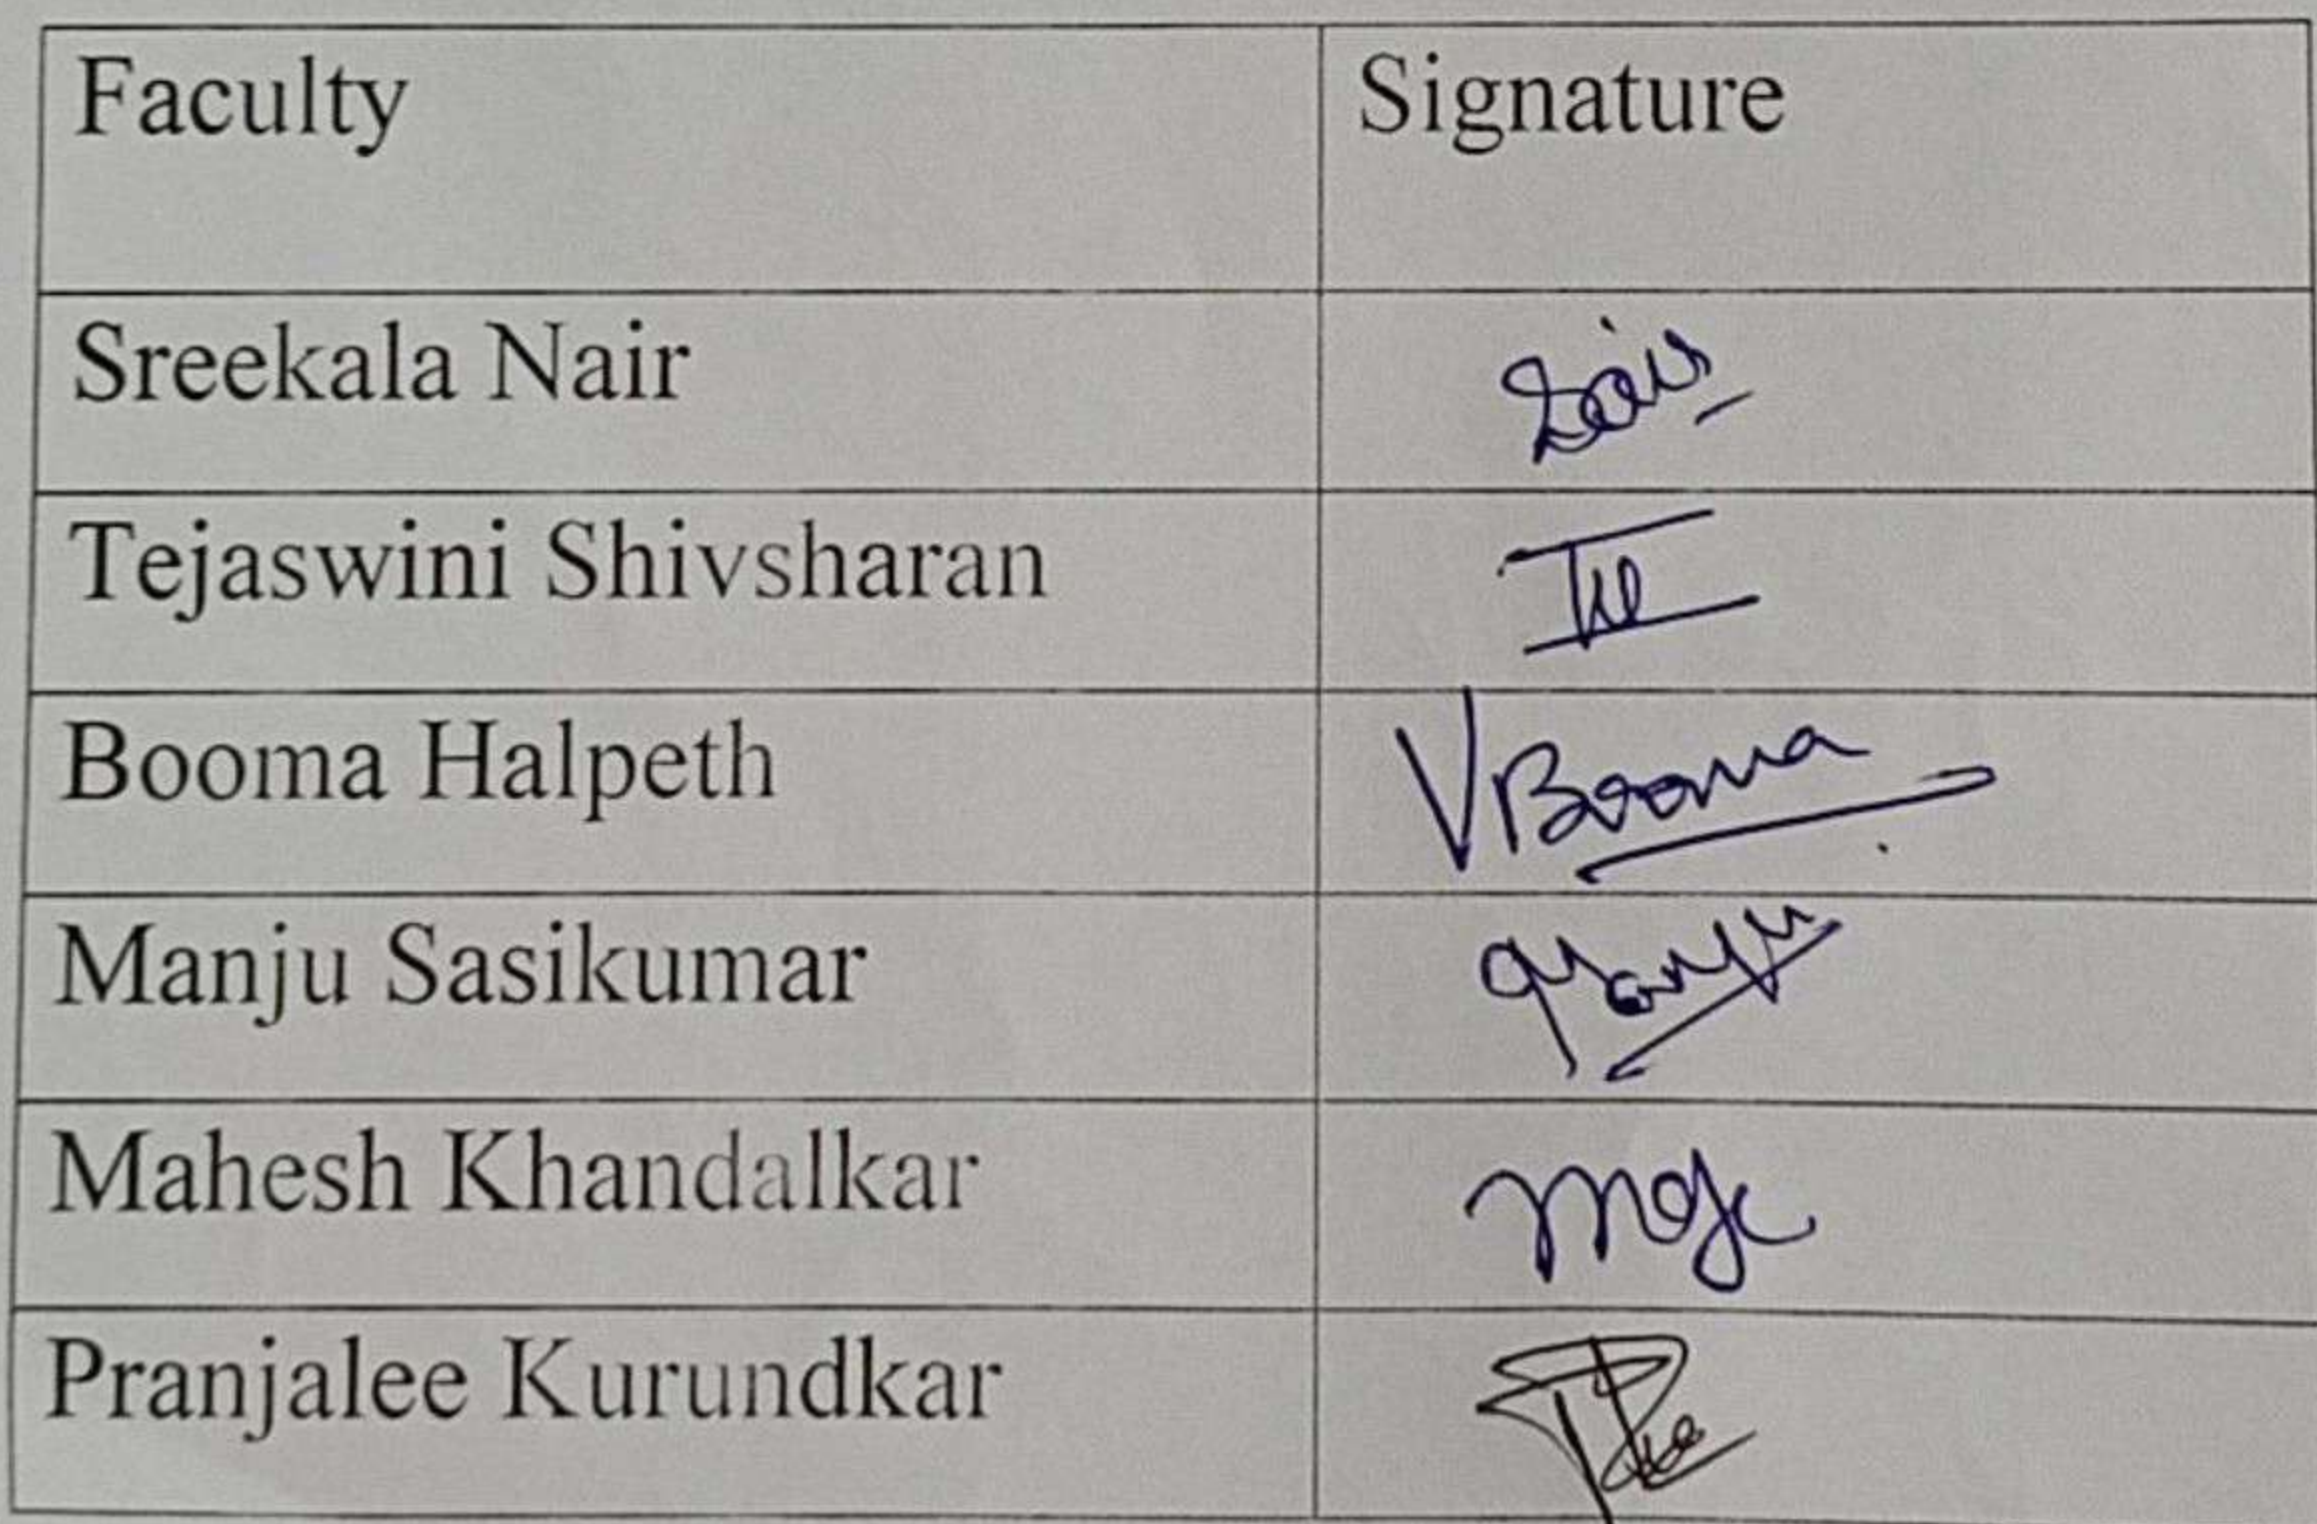 Faculty Signature
Sreekala Nair
Tejaswini Shivsharan
Booma Halpeth VBooma
Manju Sasikumar Manju
Mahesh Khandalkar
Pranjalee Kurundkar